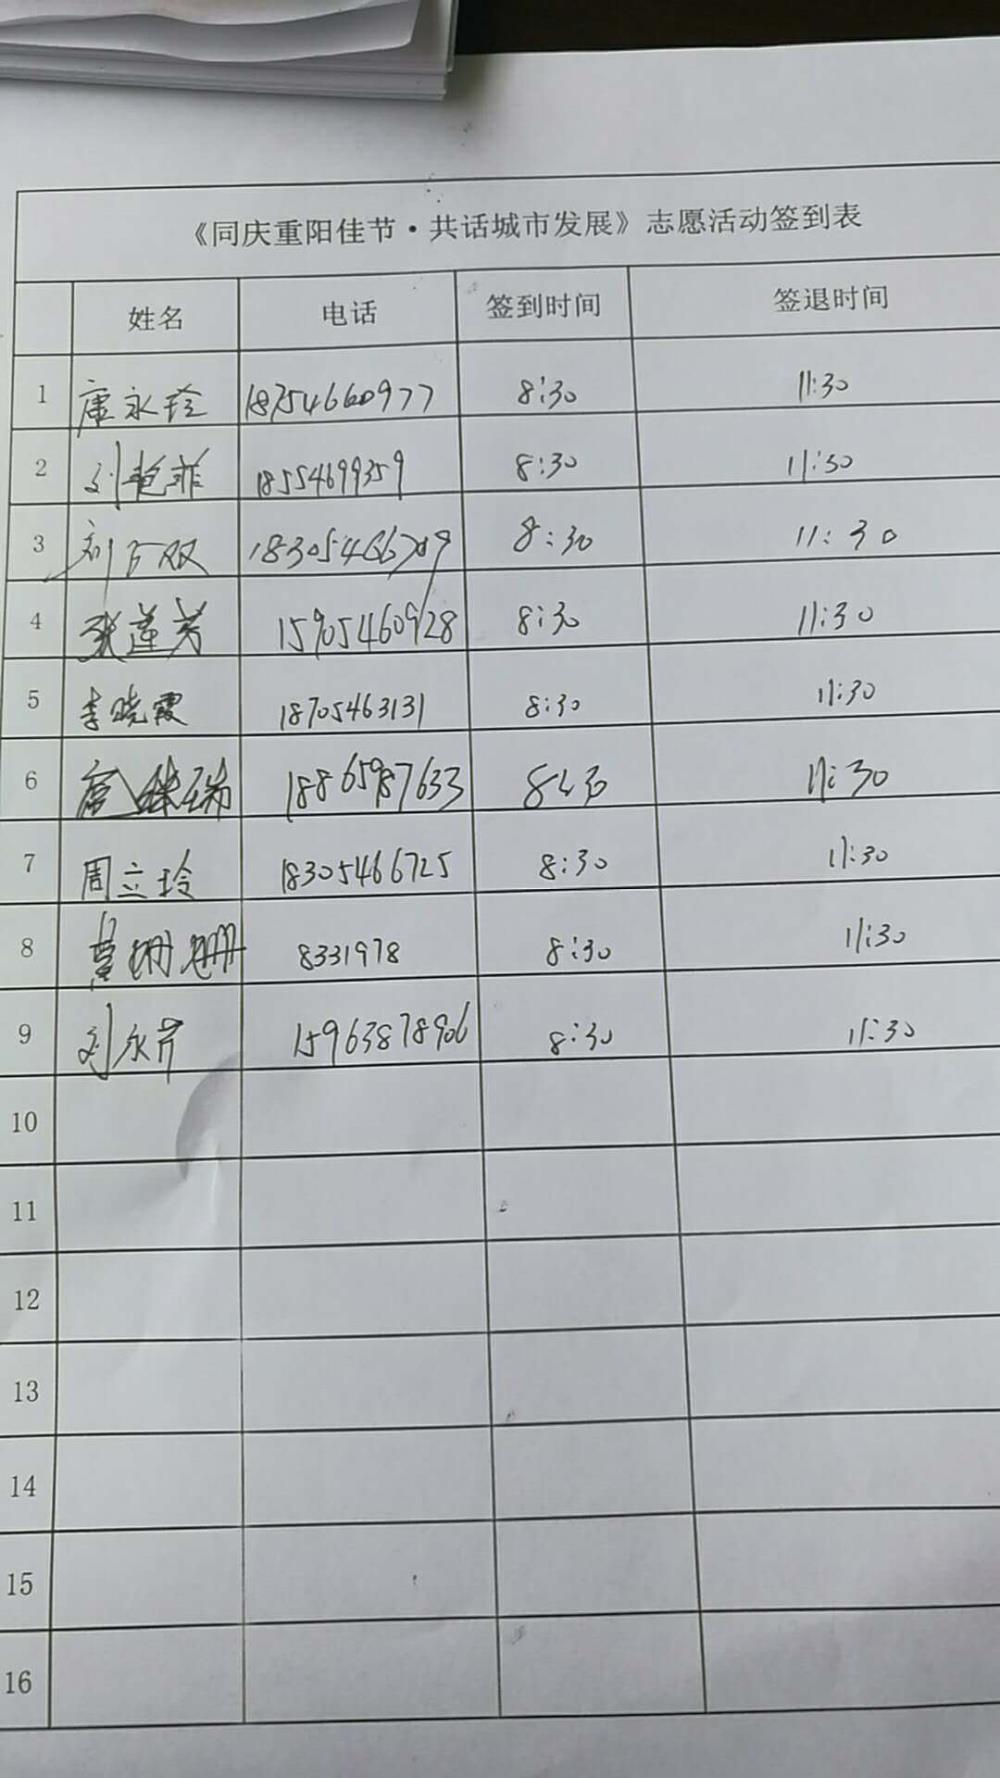 《同庆重阳佳节·共话城市发展》志愿活动签到表
姓名 电话 签到时间 签退时间
1 唐永玲 18754660977 8:30 11:30
2 刘艳菲 18554699359 8:30 11:30
3 刘万双 18305466709 8:30 11:30
4 张莲芳 15905460928 8:30 11:30
5 李晓霞 18705463131 8:30 11:30
6 18865987633 8:30 11:30
7 周立玲 18305466725 8:30 11:30
8 珊珊 8331978 8:30 11:30
9 刘永芹 15963878906 8:30 11:30
10
11
12
13
14
15
16